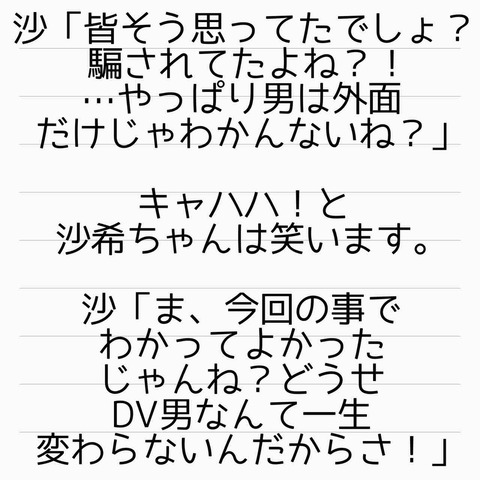 沙「皆そう思ってたでしょ？
騙されてたよね？！
…やっぱり男は外面
だけじゃわかんないね？」
キャハハ！と
沙希ちゃんは笑います。
沙「ま、今回の事で
わかってよかった
じゃんね？どうせ
DV男なんて一生
変わらないんだからさ！」